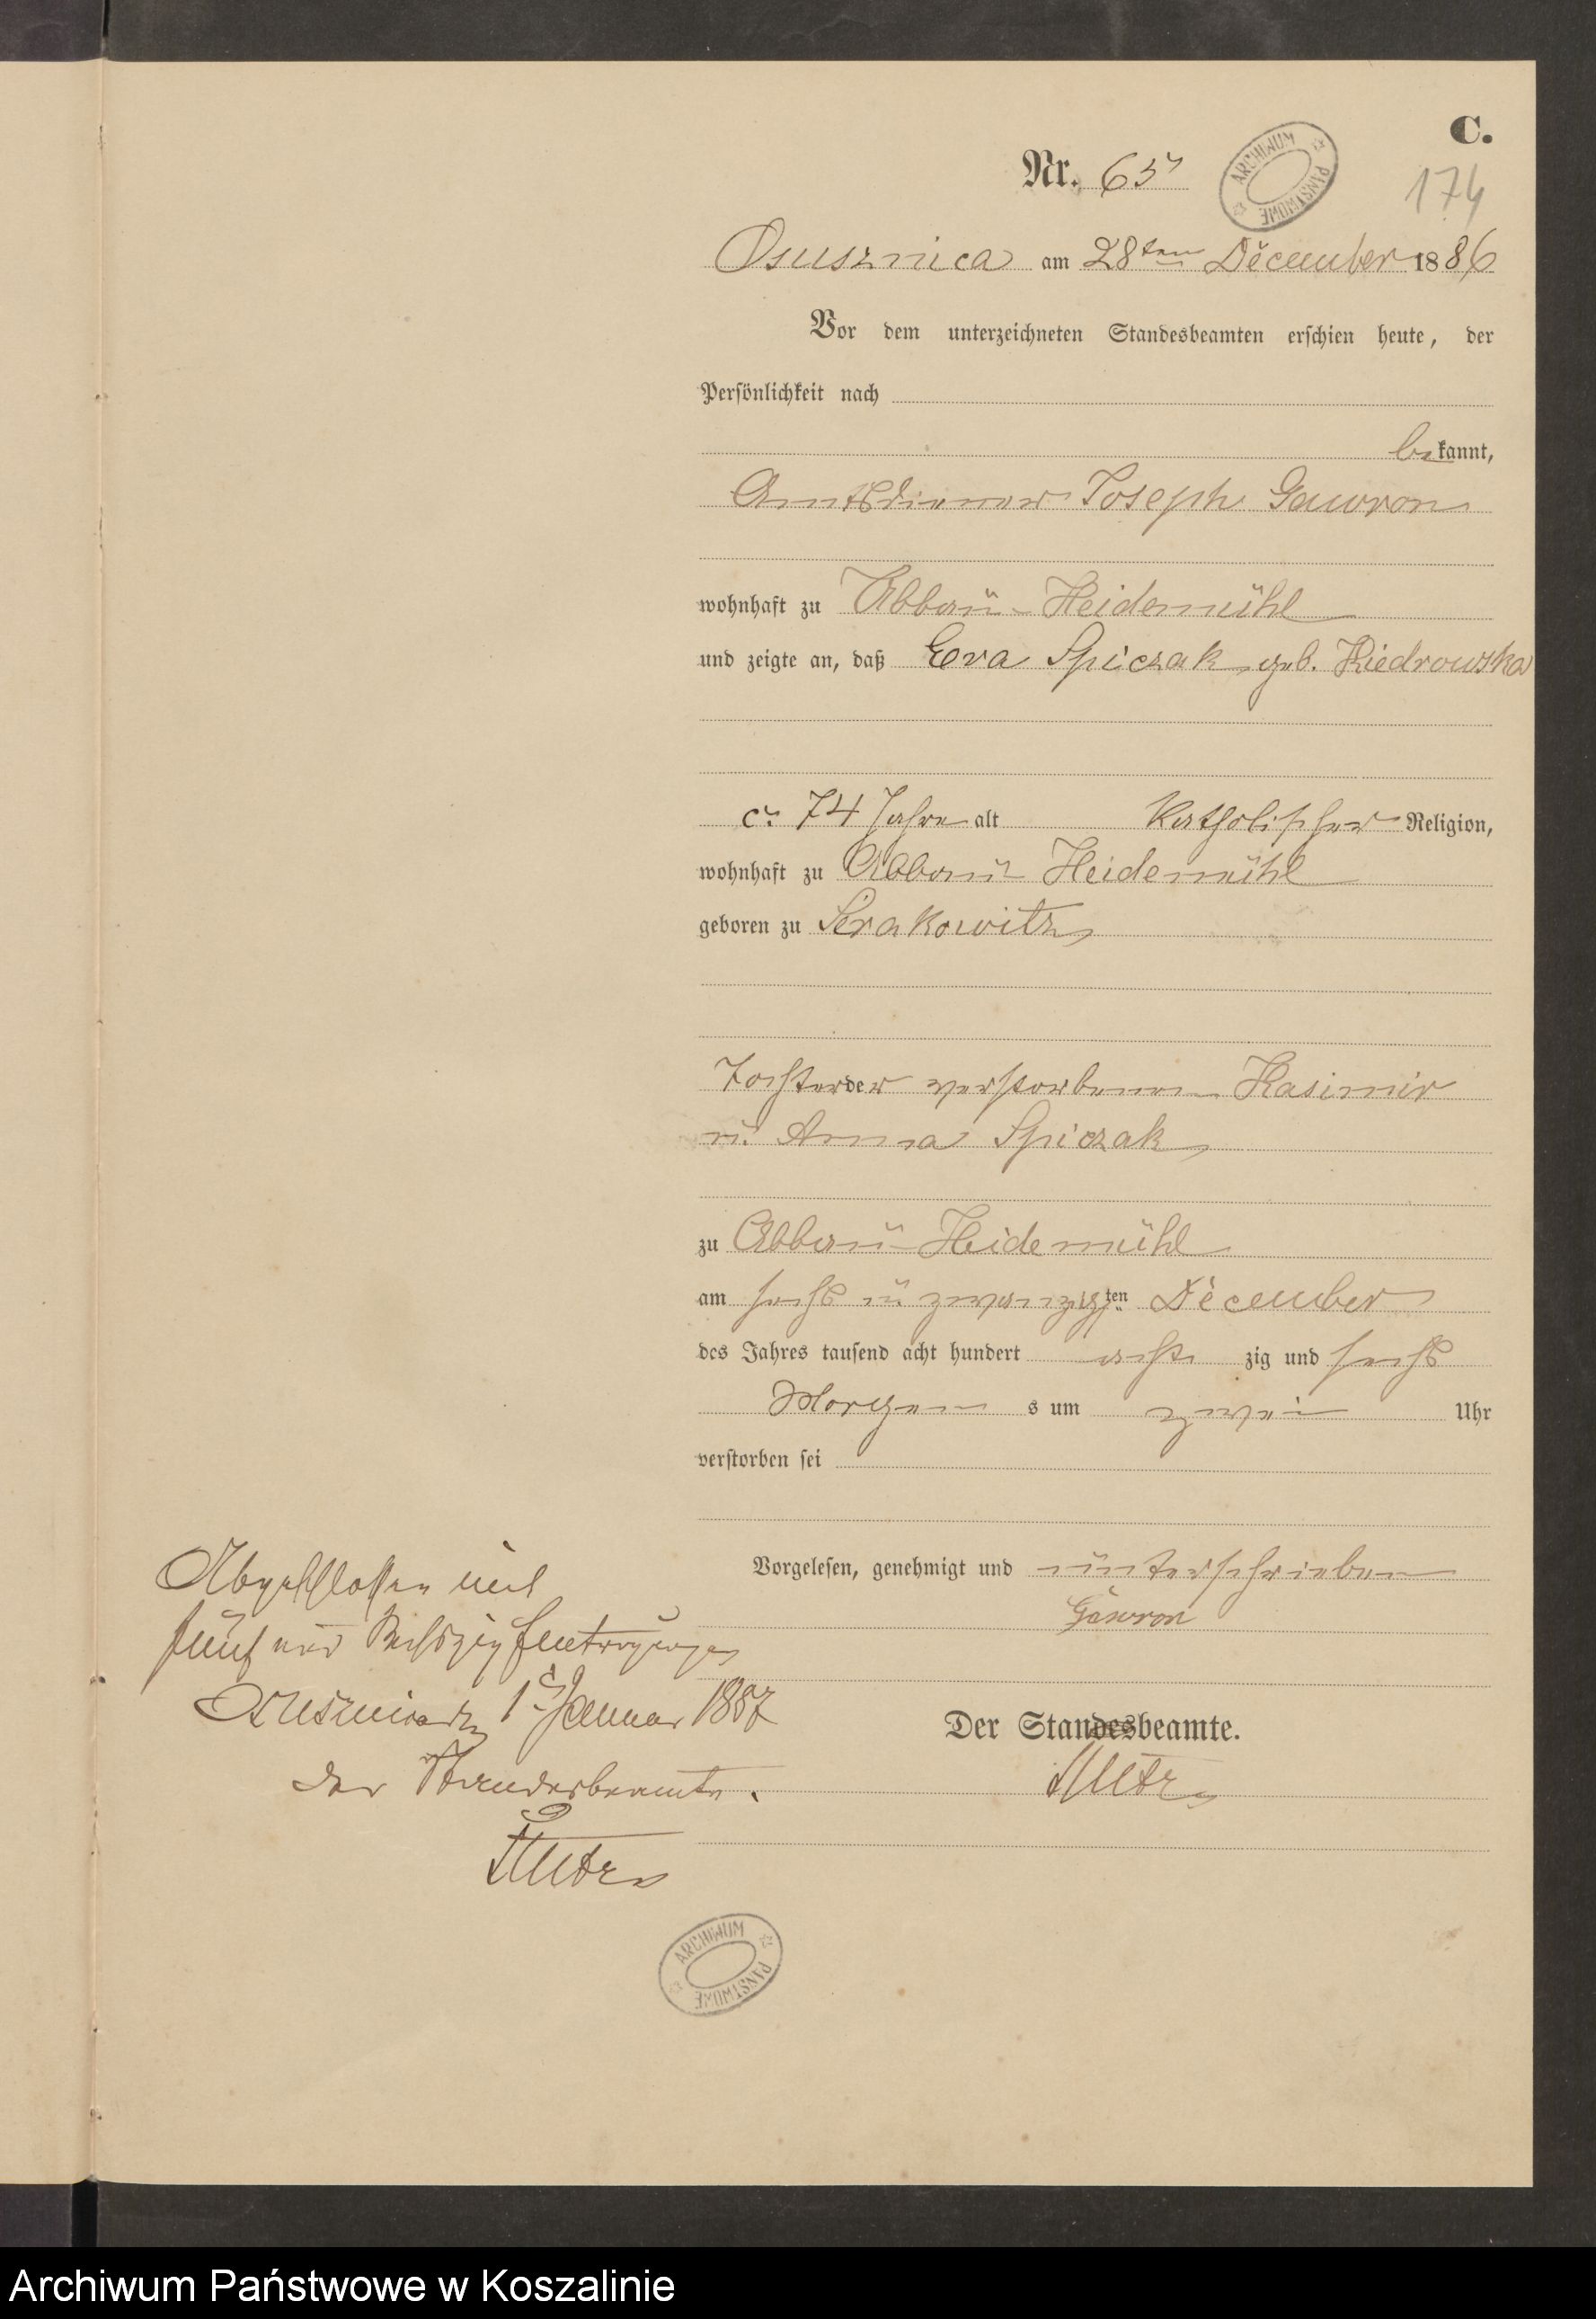 C.
Nr. 65
ARCHIWUM PAŃSTWOWE
174
Osusznica am 28ten December 1886
Vor dem unterzeichneten Standesbeamten erschien heute, der
Persönlichkeit nach
bekannt,
Amtsdiener Joseph Gawron
wohnhaft zu Abbau Heidemühl
und zeigte an, daß Eva Spiczak geb. Kiedrowska
c. 74 Jahre alt Katholischer Religion,
wohnhaft zu Abbau Heidemühl
geboren zu Serakowitz
Tochter der verstorbenen Kasimir
u. Anna Spiczak
zu Abbau Heidemühl
am sechs u zwanzigsten December
des Jahres tausend acht hundert acht zig und sechs
Morgen s um zwei Uhr
verstorben sei
Vorgelesen, genehmigt und unterschrieben
Gawron
Der Standesbeamte.
Abgeschlossen mit
fünf und sechszig Eintragungen
1. Januar 1887
Der Standesbeamte.
ARCHIWUM PAŃSTWOWE
Archiwum Państwowe w Koszalinie